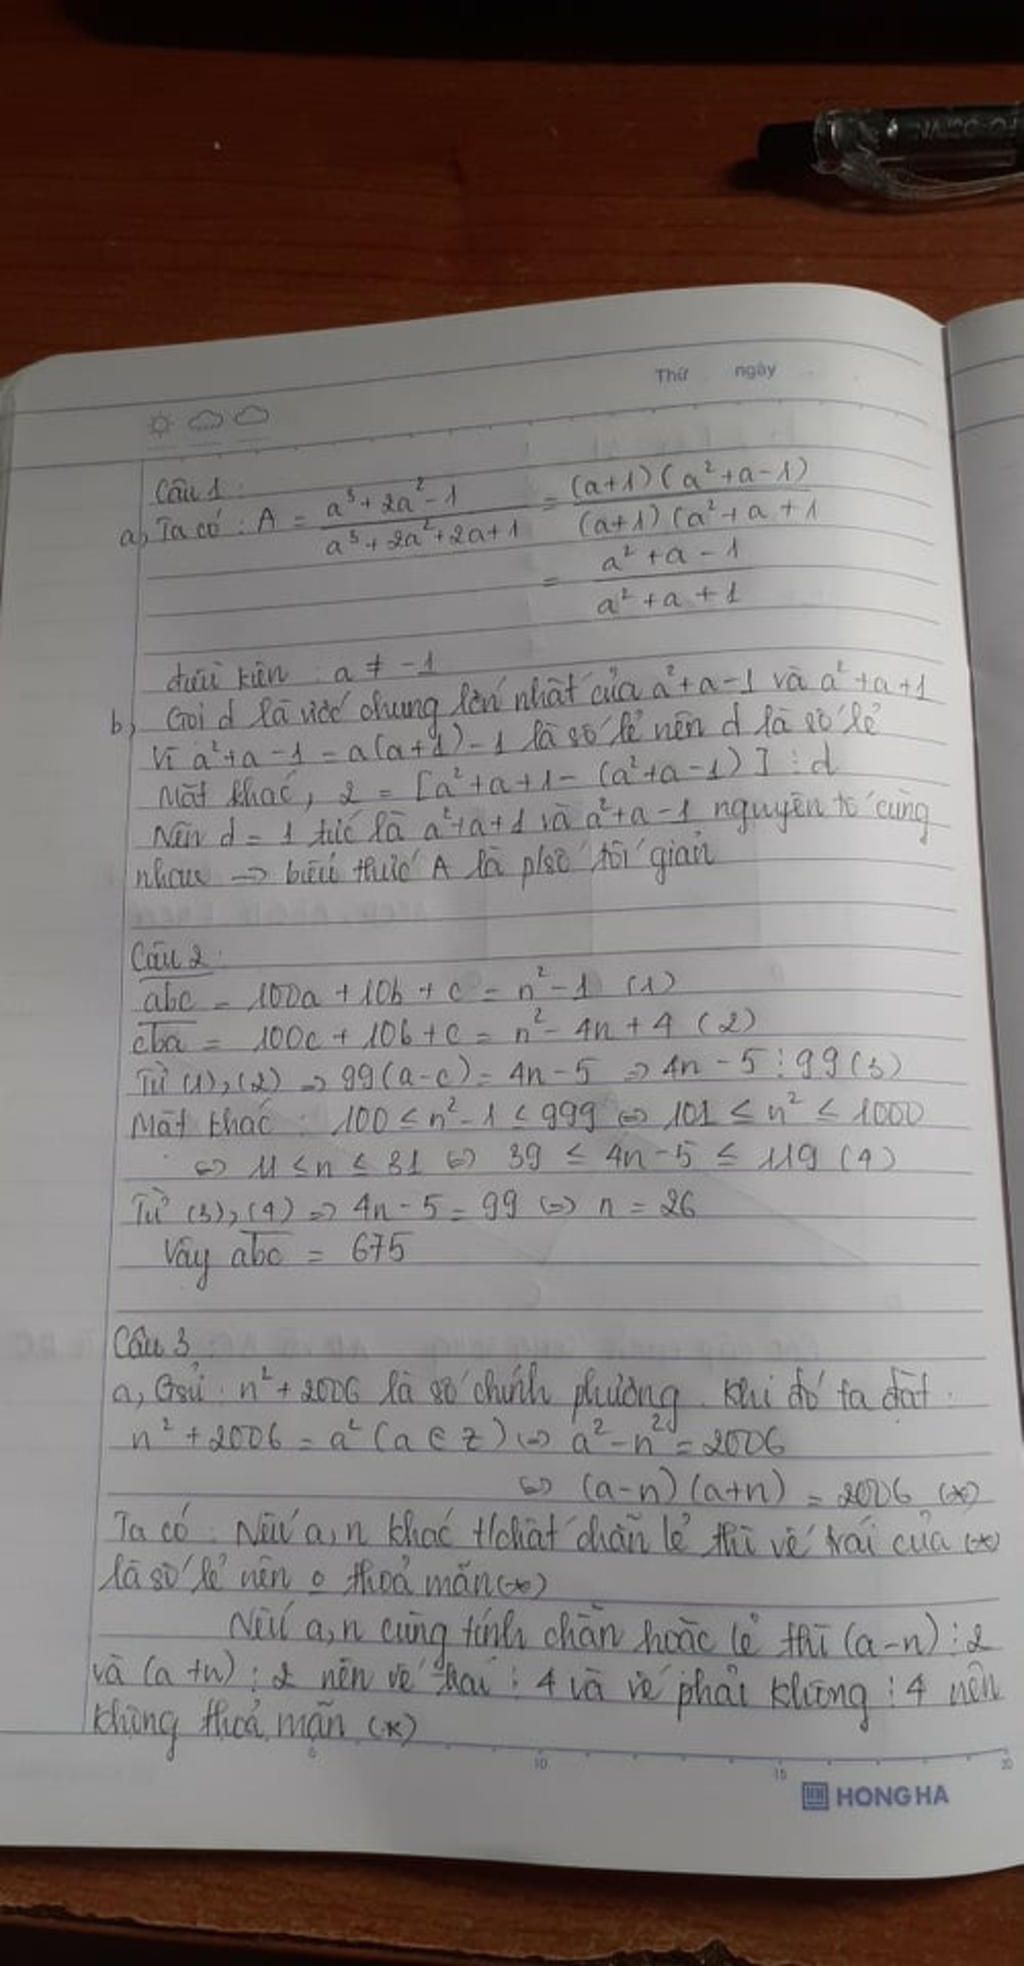 Thứ ngày
Câu 1:
a, Ta có: A = a³ + 2a² - 1 / a³ + 2a² + 2a + 1 = (a+1)(a² + a - 1) / (a+1)(a² + a + 1
= a² + a - 1 / a² + a + 1
điều kiện: a ≠ -1
b, Gọi d là ước chung lớn nhất của a² + a - 1 và a² + a + 1
Vì a² + a - 1 = a(a+1) - 1 là số lẻ nên d là số lẻ
Mặt khác, 2 = [a² + a + 1 - (a² + a - 1)] ⋮ d
Nên d = 1 tức là a² + a + 1 và a² + a - 1 nguyên tố cùng
nhau => biểu thức A là p/số tối giản
Câu 2:
abc = 100a + 10b + c = n² - 1 (1)
cba = 100c + 10b + c = n² - 4n + 4 (2)
Từ (1), (2) => 99(a-c) = 4n - 5 => 4n - 5 ⋮ 99 (3)
Mặt khác: 100 ≤ n² - 1 ≤ 999 <=> 101 ≤ n² ≤ 1000
<=> 11 ≤ n ≤ 31 <=> 39 ≤ 4n - 5 ≤ 119 (4)
Từ (3), (4) => 4n - 5 = 99 <=> n = 26
Vậy abc = 675
Câu 3
a, Gsử n² + 2006 là số chính phương. Khi đó ta đặt
n² + 2006 = a² (a ∈ Z) <=> a² - n² = 2006
<=> (a-n)(a+n) = 2006 (*)
Ta có: Nếu a,n khác t/chất chẵn lẻ thì vế trái của (*)
là số lẻ nên o thoả mãn (*)
Nếu a,n cùng tính chẵn hoặc lẻ thì (a-n) ⋮ 2
và (a+n) ⋮ 2 nên vế trái ⋮ 4 và vế phải không ⋮ 4 nên
không thoả mãn (*)
5 10 15 20
HONG HA